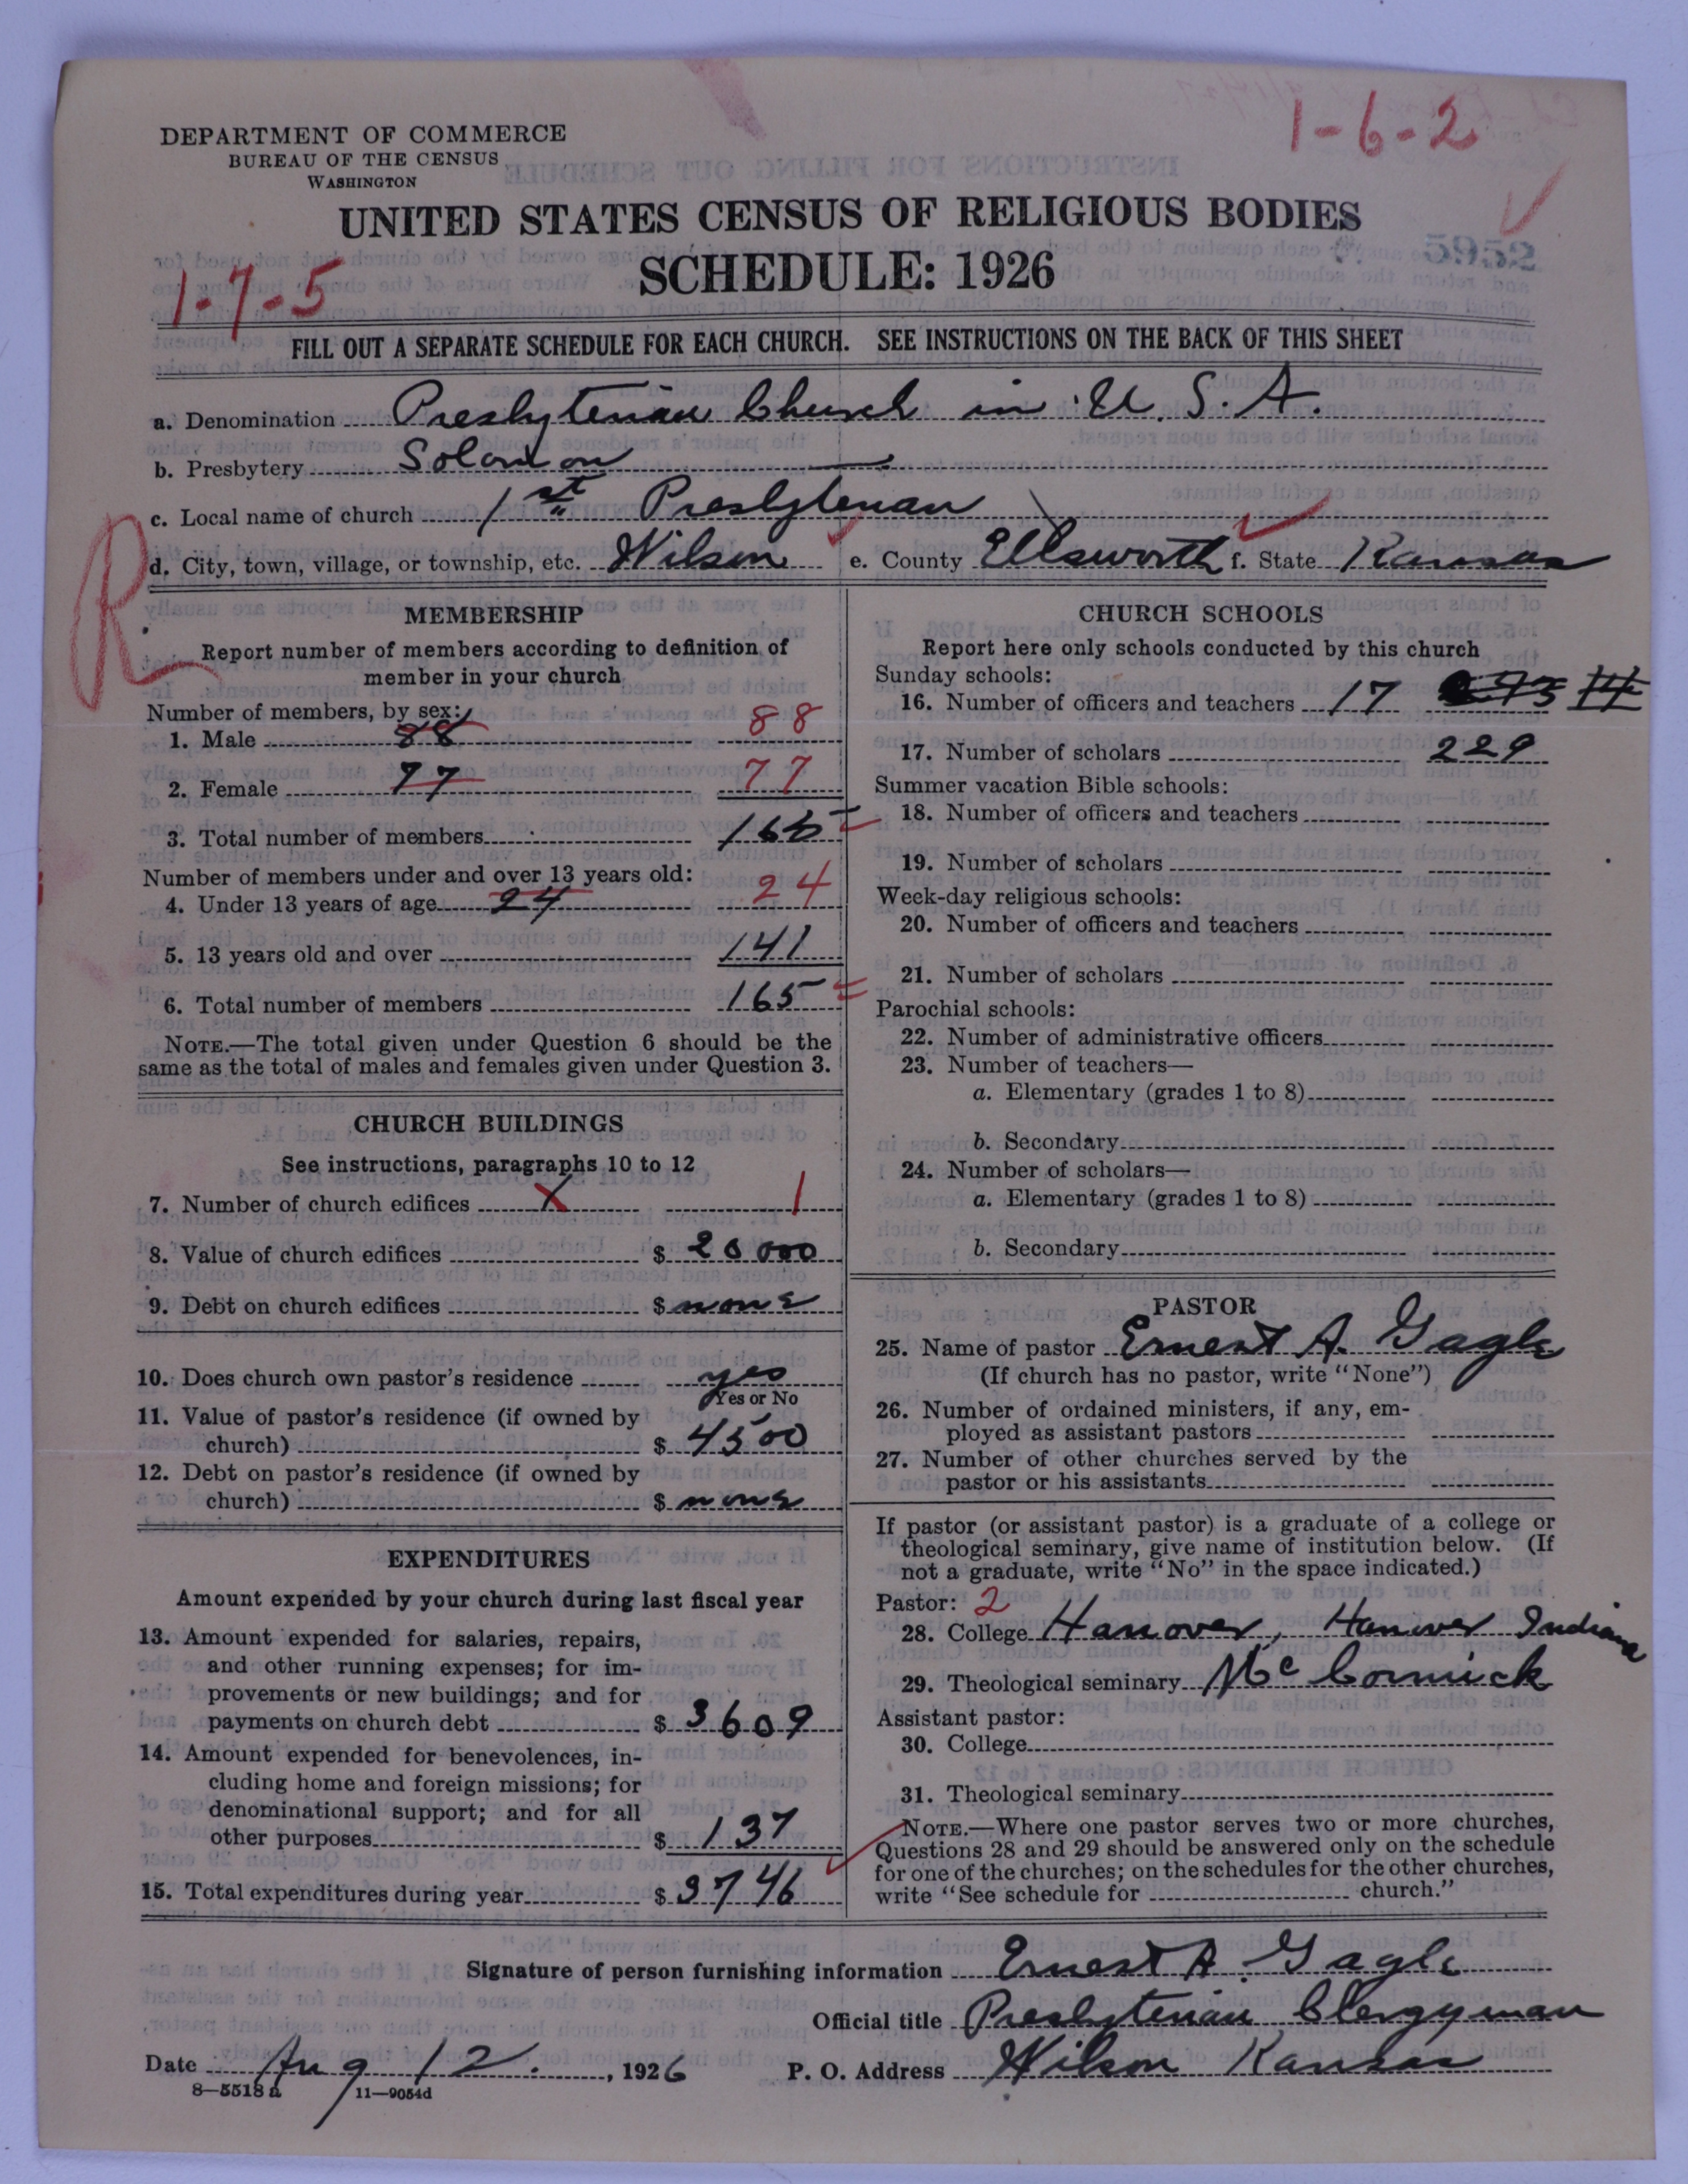 1-6-2
DEPARTMENT OF COMMERCE
BUREAU OF THE CENSUS
WASHINGTON
UNITED STATES CENSUS OF RELIGIOUS BODIES
5952
SCHEDULE: 1926
1-7-5
FILL OUT A SEPARATE SCHEDULE FOR EACH CHURCH. SEE INSTRUCTIONS ON THE BACK OF THIS SHEET
a. Denomination Presbyterian Church in U. S. A.
b. Presbytery Solomon
c. Local name of church 1st Presbyterian
d. City, town, village, or township, etc. Wilson e. County Ellsworth f. State Kansas
R
MEMBERSHIP
Report number of members according to definition of
member in your church
Number of members, by sex:
1. Male 88 88
2. Female 77 77
3. Total number of members 165
Number of members under and over 13 years old:
4. Under 13 years of age 24 24
5. 13 years old and over 141
6. Total number of members 165
NOTE.—The total given under Question 6 should be the
same as the total of males and females given under Question 3.
CHURCH BUILDINGS
See instructions, paragraphs 10 to 12
7. Number of church edifices 1 1
8. Value of church edifices $ 20000
9. Debt on church edifices $ none
10. Does church own pastor's residence yes
Yes or No
11. Value of pastor's residence (if owned by
church) $ 4500
12. Debt on pastor's residence (if owned by
church) $ none
EXPENDITURES
Amount expended by your church during last fiscal year
13. Amount expended for salaries, repairs,
and other running expenses; for im-
provements or new buildings; and for
payments on church debt $ 3609
14. Amount expended for benevolences, in-
cluding home and foreign missions; for
denominational support; and for all
other purposes $ 137
15. Total expenditures during year $ 3746
CHURCH SCHOOLS
Report here only schools conducted by this church
Sunday schools:
16. Number of officers and teachers 17
17. Number of scholars 229
Summer vacation Bible schools:
18. Number of officers and teachers
19. Number of scholars
Week-day religious schools:
20. Number of officers and teachers
21. Number of scholars
Parochial schools:
22. Number of administrative officers
23. Number of teachers—
a. Elementary (grades 1 to 8)
b. Secondary
24. Number of scholars—
a. Elementary (grades 1 to 8)
b. Secondary
PASTOR
25. Name of pastor Ernest A. Gagle
(If church has no pastor, write "None")
26. Number of ordained ministers, if any, em-
ployed as assistant pastors
27. Number of other churches served by the
pastor or his assistants
If pastor (or assistant pastor) is a graduate of a college or
theological seminary, give name of institution below. (If
not a graduate, write "No" in the space indicated.)
Pastor: 2
28. College Hanover, Hanover Indiana
29. Theological seminary McCormick
Assistant pastor:
30. College
31. Theological seminary
NOTE.—Where one pastor serves two or more churches,
Questions 28 and 29 should be answered only on the schedule
for one of the churches; on the schedules for the other churches,
write "See schedule for church."
Signature of person furnishing information Ernest A. Gagle
Official title Presbyterian Clergyman
Date Aug 12., 1926 P. O. Address Wilson Kansas
8—5518 a 11—9054d